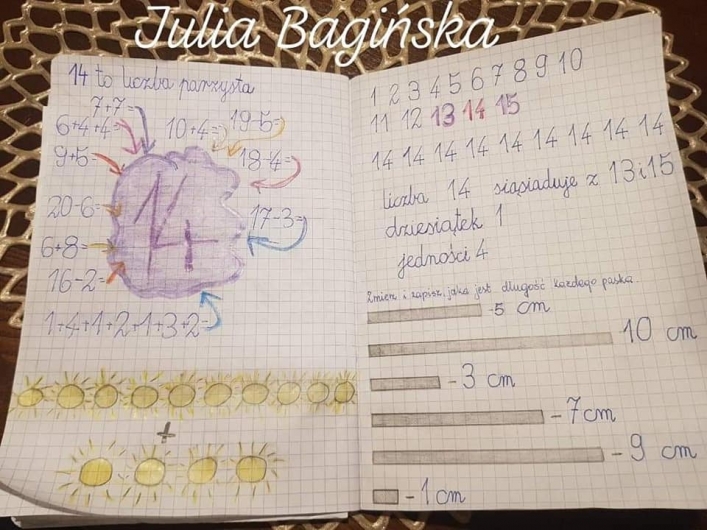 Julia Bagińska
14 to liczba parzysta
7+7=
6+4+4=
10+4=
19-5=
9+5=
18-4=
20-6=
17-3=
6+8=
16-2=
1+4+1+2+1+3+2=
14
+
1 2 3 4 5 6 7 8 9 10
11 12 13 14 15
14 14 14 14 14 14 14 14 14 14
liczba 14 siąsiaduje z 13 i 15
dziesiątek 1
jedności 4
Zmierz i zapisz, jaka jest długość każdego paska.
-5 cm
10 cm
-3 cm
-7 cm
-9 cm
-1 cm